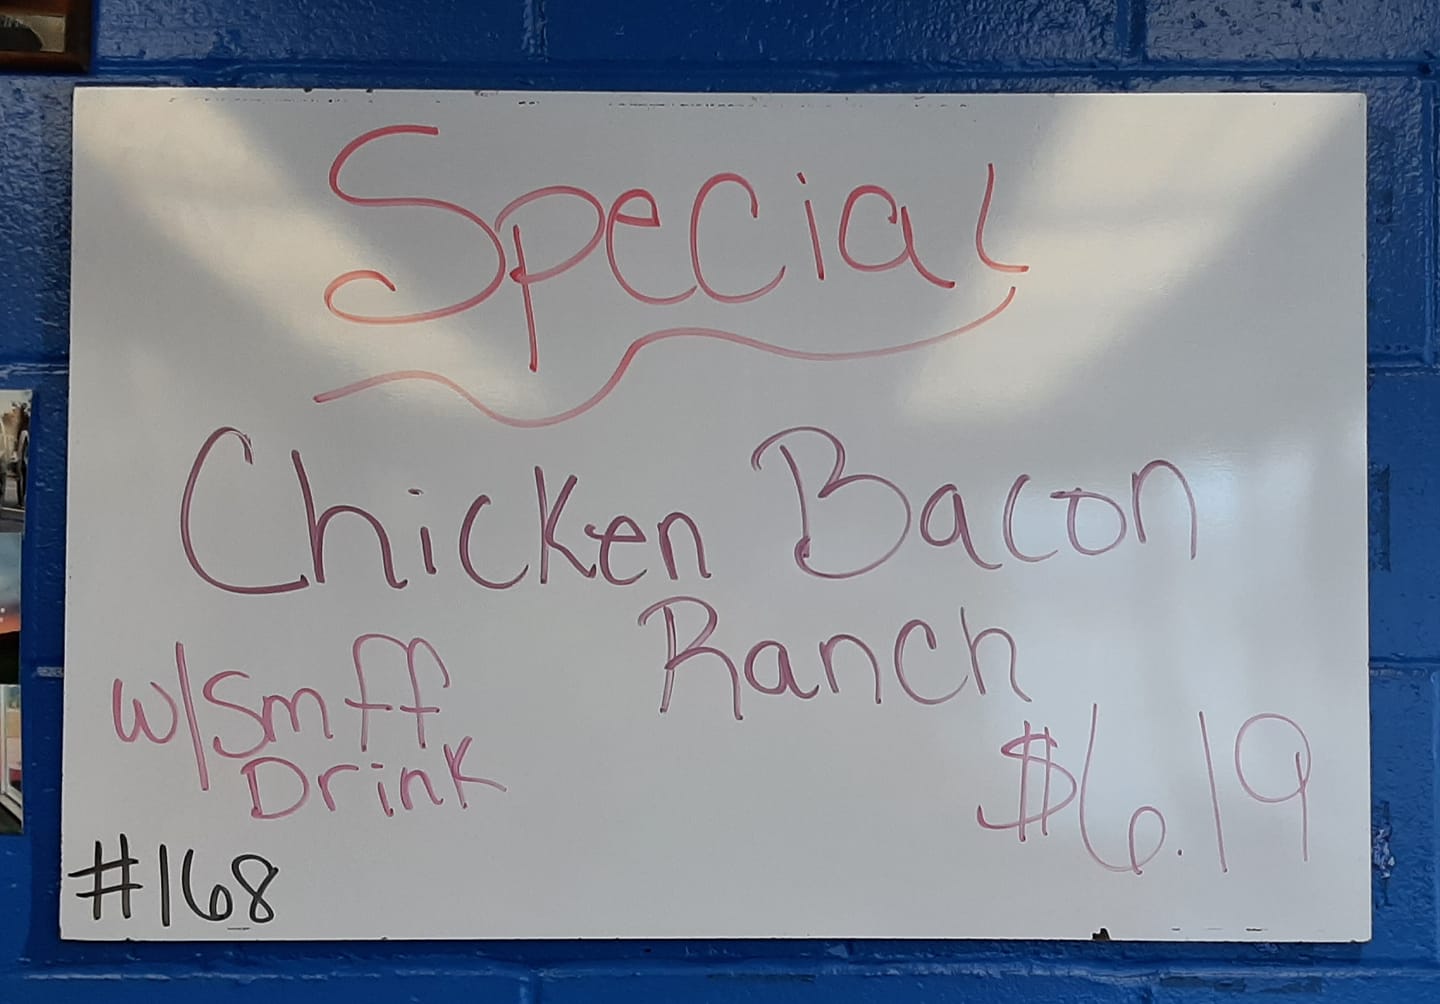 Special
Chicken Bacon
Ranch
w/Smff
Drink
$6.19
#168